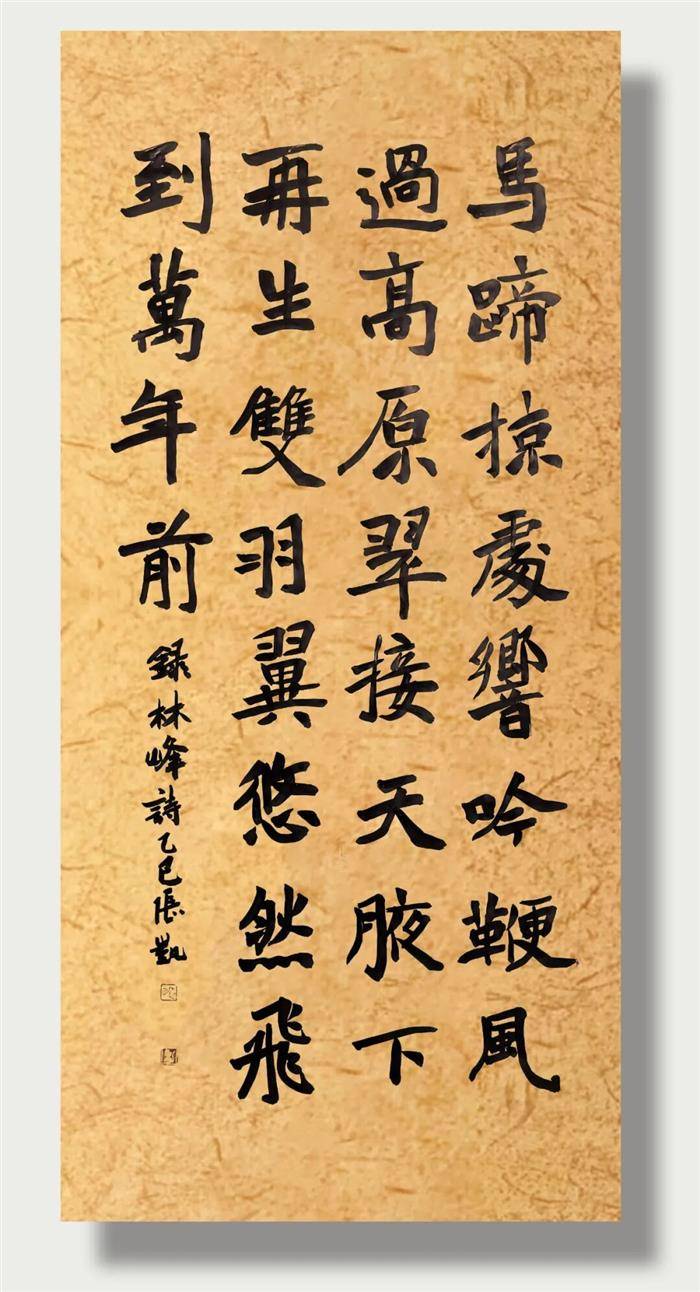 馬蹄掠處響吟鞭風
過高原翠接天腋下
再生雙羽翼悠然飛
到萬年前
錄林峰詩乙巳張凱